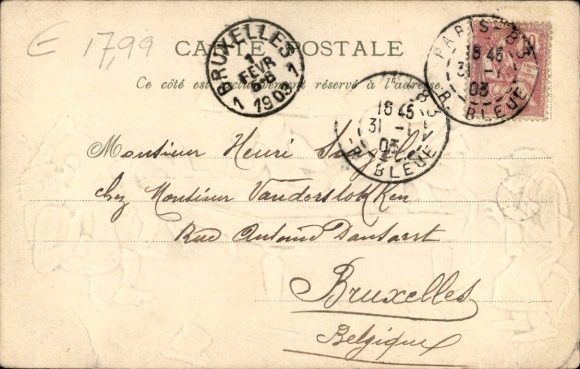 E 17,99
CARTE POSTALE
Ce côté est exclusivement réservé à l'adresse.
BRUXELLES 1
1
FEVR
5-6
1903
1
PARIS 83
16 45
31 -1
03
R. BLEUE
16 45
31 -1
03
83
R. BLEUE
Monsieur Henri
chez Monsieur Vanderslokken
Rue Antoine Dansaert
Bruxelles
Belgique